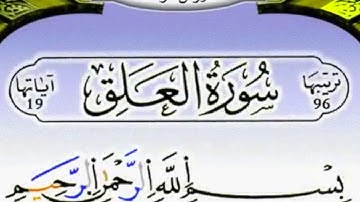 ترتيبها 96 سُورَةُ العَلَقِ آياتها 19
بِسْمِ اللَّهِ الرَّحْمَٰنِ الرَّحِيمِ